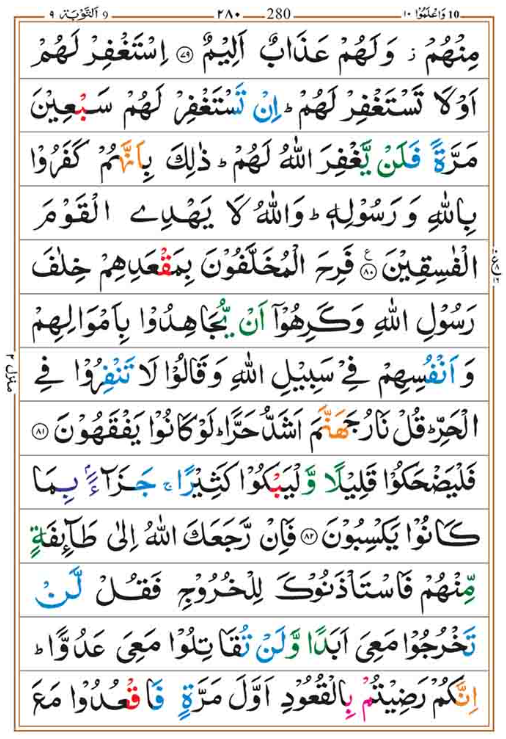 10 وَاعْلَمُوْۤا ۱۰ 280 ۲۸۰ 9 اَلتَّوْبَة ۹
مِنْهُمْ ز وَلَهُمْ عَذَابٌ اَلِيْمٌ ۝۷۹ اِسْتَغْفِرْ لَهُمْ
اَوْلَا تَسْتَغْفِرْ لَهُمْ ؕ اِنْ تَسْتَغْفِرْ لَهُمْ سَبْعِيْنَ
مَرَّةً فَلَنْ يَّغْفِرَ اللّٰهُ لَهُمْ ؕ ذٰلِكَ بِاَنَّهُمْ كَفَرُوْا
بِاللّٰهِ وَرَسُوْلِهٖ ؕ وَاللّٰهُ لَا يَهْدِي الْقَوْمَ
الْفٰسِقِيْنَ ۝۸۰ ع فَرِحَ الْمُخَلَّفُوْنَ بِمَقْعَدِهِمْ خِلٰفَ
رَسُوْلِ اللّٰهِ وَكَرِهُوْۤا اَنْ يُّجَاهِدُوْا بِاَمْوَالِهِمْ
وَاَنْفُسِهِمْ فِيْ سَبِيْلِ اللّٰهِ وَقَالُوْا لَا تَنْفِرُوْا فِي
الْحَرِّ ؕ قُلْ نَارُ جَهَنَّمَ اَشَدُّ حَرًّا ؕ لَوْ كَانُوْا يَفْقَهُوْنَ ۝۸۱
فَلْيَضْحَكُوْا قَلِيْلًا وَّلْيَبْكُوْا كَثِيْرًا ۚ جَزَآءًۢ بِمَا
كَانُوْا يَكْسِبُوْنَ ۝۸۲ فَاِنْ رَّجَعَكَ اللّٰهُ اِلٰى طَآئِفَةٍ
مِّنْهُمْ فَاسْتَاْذَنُوْكَ لِلْخُرُوْجِ فَقُلْ لَّنْ
تَخْرُجُوْا مَعِيَ اَبَدًا وَّلَنْ تُقَاتِلُوْا مَعِيَ عَدُوًّا ؕ
اِنَّكُمْ رَضِيْتُمْ بِالْقُعُوْدِ اَوَّلَ مَرَّةٍ فَاقْعُدُوْا مَعَ
منزل ۲